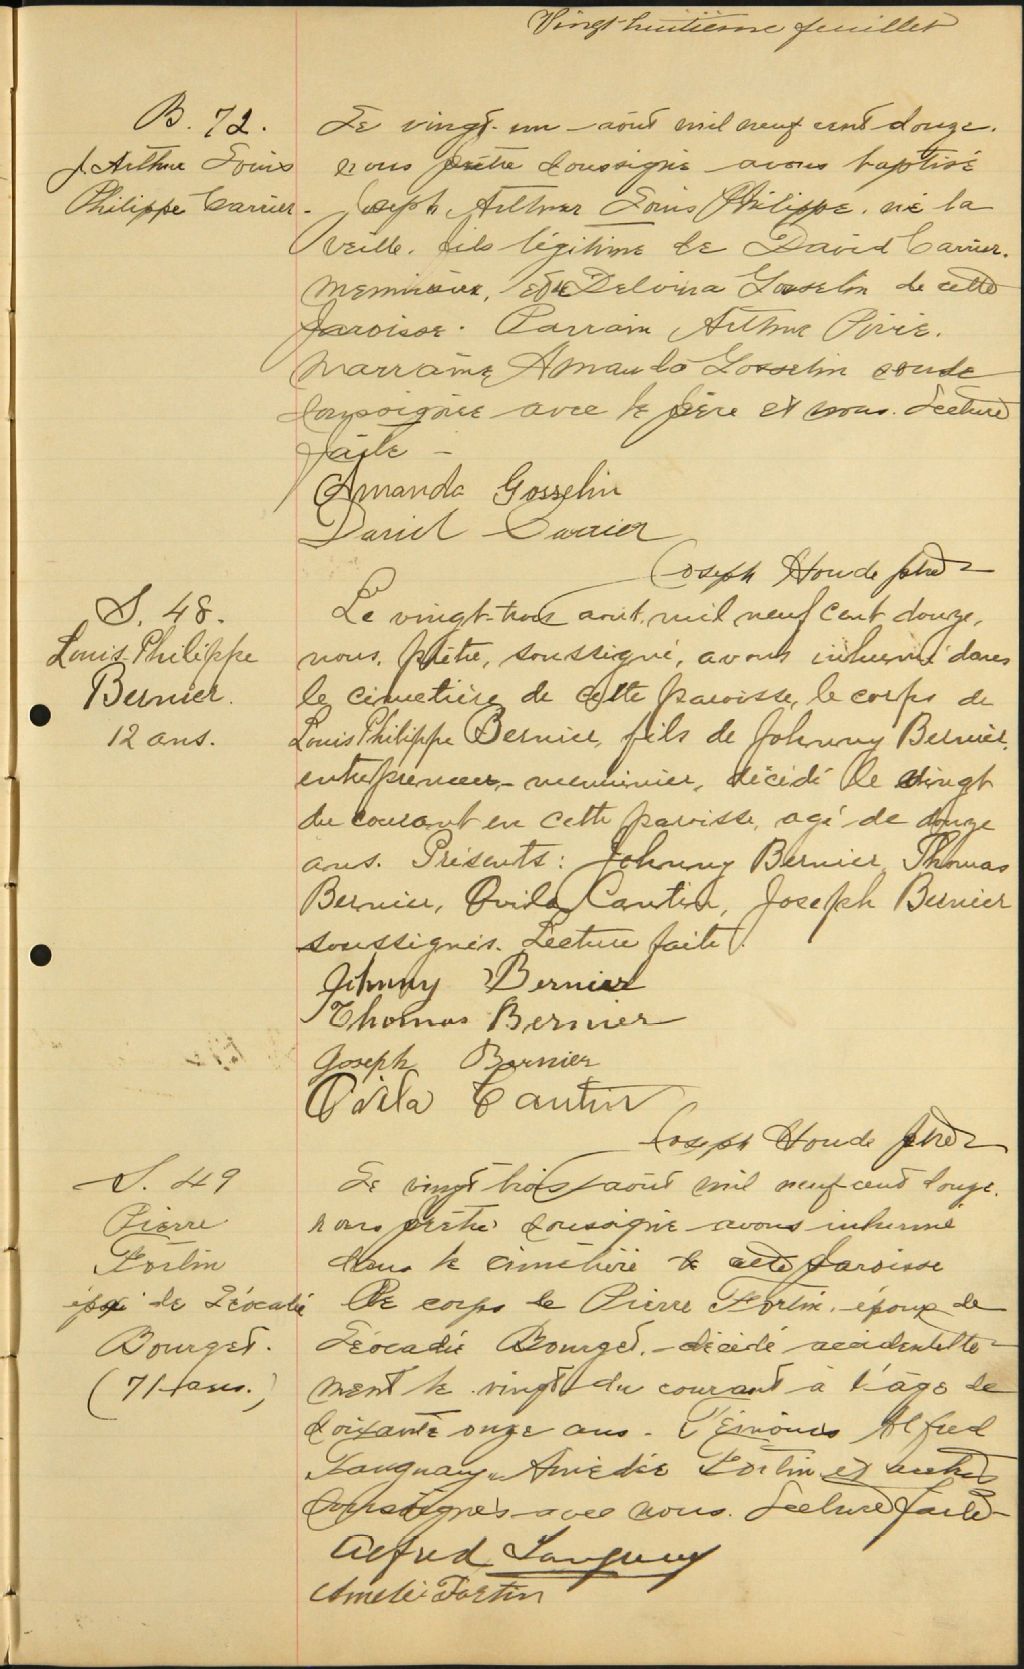 Vingt-huitième feuillet
B. 72.
J. Arthur Louis
Philippe Carrier.
Le vingt-un août mil neuf cent douze.
nous prêtre soussigné avons baptisé
Joseph Arthur Louis Philippe. né la
veille. fils légitime de David Carrier.
menuisier, et de Delvina Gosselin de cette
paroisse. Parrain Arthur
marraine Amanda Gosselin
soussignée avec le père et nous. Lecture
faite -
Amanda Gosselin
David Carrier
Joseph Houde ptre
S. 48.
Louis-Philippe
Bernier.
12 ans.
Le vingt-trois août, mil neuf cent douze,
nous, prêtre, soussigné, avons inhumé dans
le cimetière de cette paroisse, le corps de
Louis Philippe Bernier, fils de Johnny Bernier,
entrepreneur-menuisier, décédé le vingt
du courant en cette paroisse, agé de douze
ans. Présents: Johnny Bernier, Thomas
Bernier, Ovila Cantin, Joseph Bernier
soussignés. Lecture faite.
Johnny Bernier
Thomas Bernier
Joseph Bernier
Ovila Cantin
Joseph Houde ptre
S. 49
Pierre
Fortin
époux de Léocadie
Bourget.
(71 ans.)
Le vingt trois août mil neuf cent douze.
nous prêtre soussigné avons inhumé
dans le cimetière de cette paroisse
le corps de Pierre Fortin, époux de
Léocadie Bourget, décédé accidentelle-
ment le vingt du courant à l'âge de
soixante onze ans. Témoins Alfred
Tanguay, Amédée Fortin et autres
soussignés avec nous. Lecture faite-
Alfred Tanguay
Amédé Fortin